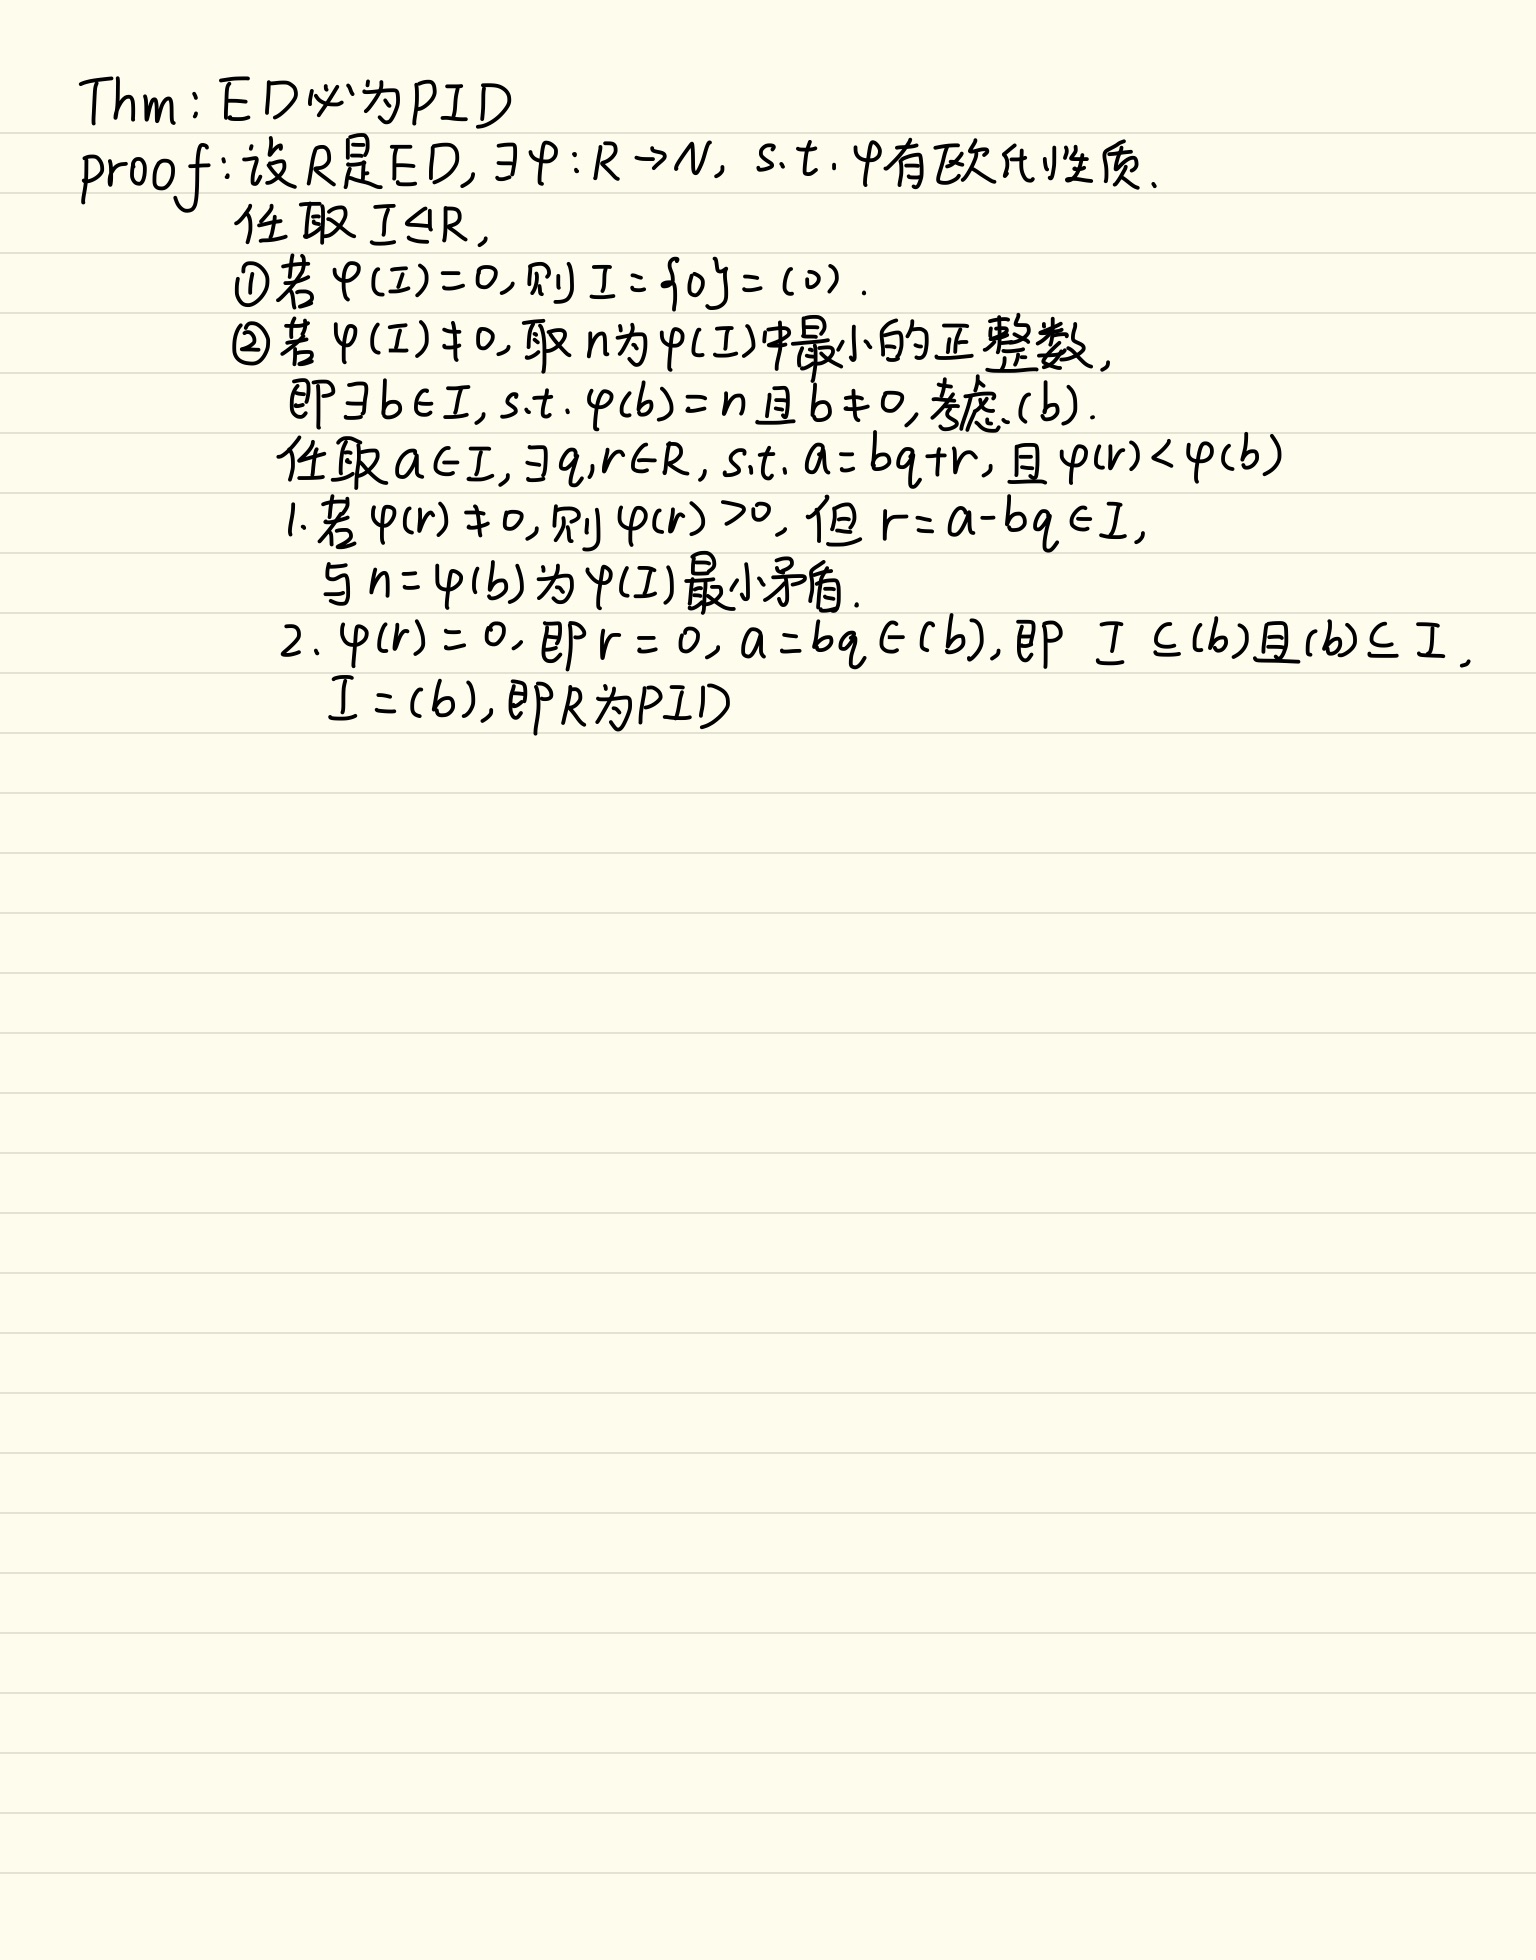 Thm: ED必为PID
proof: 设R是ED, ∃φ: R→N, s.t. φ有欧氏性质.
任取 I⊴R,
①若 φ(I)=0, 则 I={0}=(0).
②若 φ(I)≠0, 取 n为φ(I)中最小的正整数,
即∃b∈I, s.t. φ(b)=n 且 b≠0, 考虑(b).
任取 a∈I, ∃q,r∈R, s.t. a=bq+r, 且 φ(r)<φ(b)
1. 若 φ(r)≠0, 则 φ(r)>0, 但 r=a-bq∈I,
与 n=φ(b)为φ(I)最小矛盾.
2. φ(r)=0, 即 r=0, a=bq∈(b), 即 I⊆(b)且(b)⊆I,
I=(b), 即R为PID